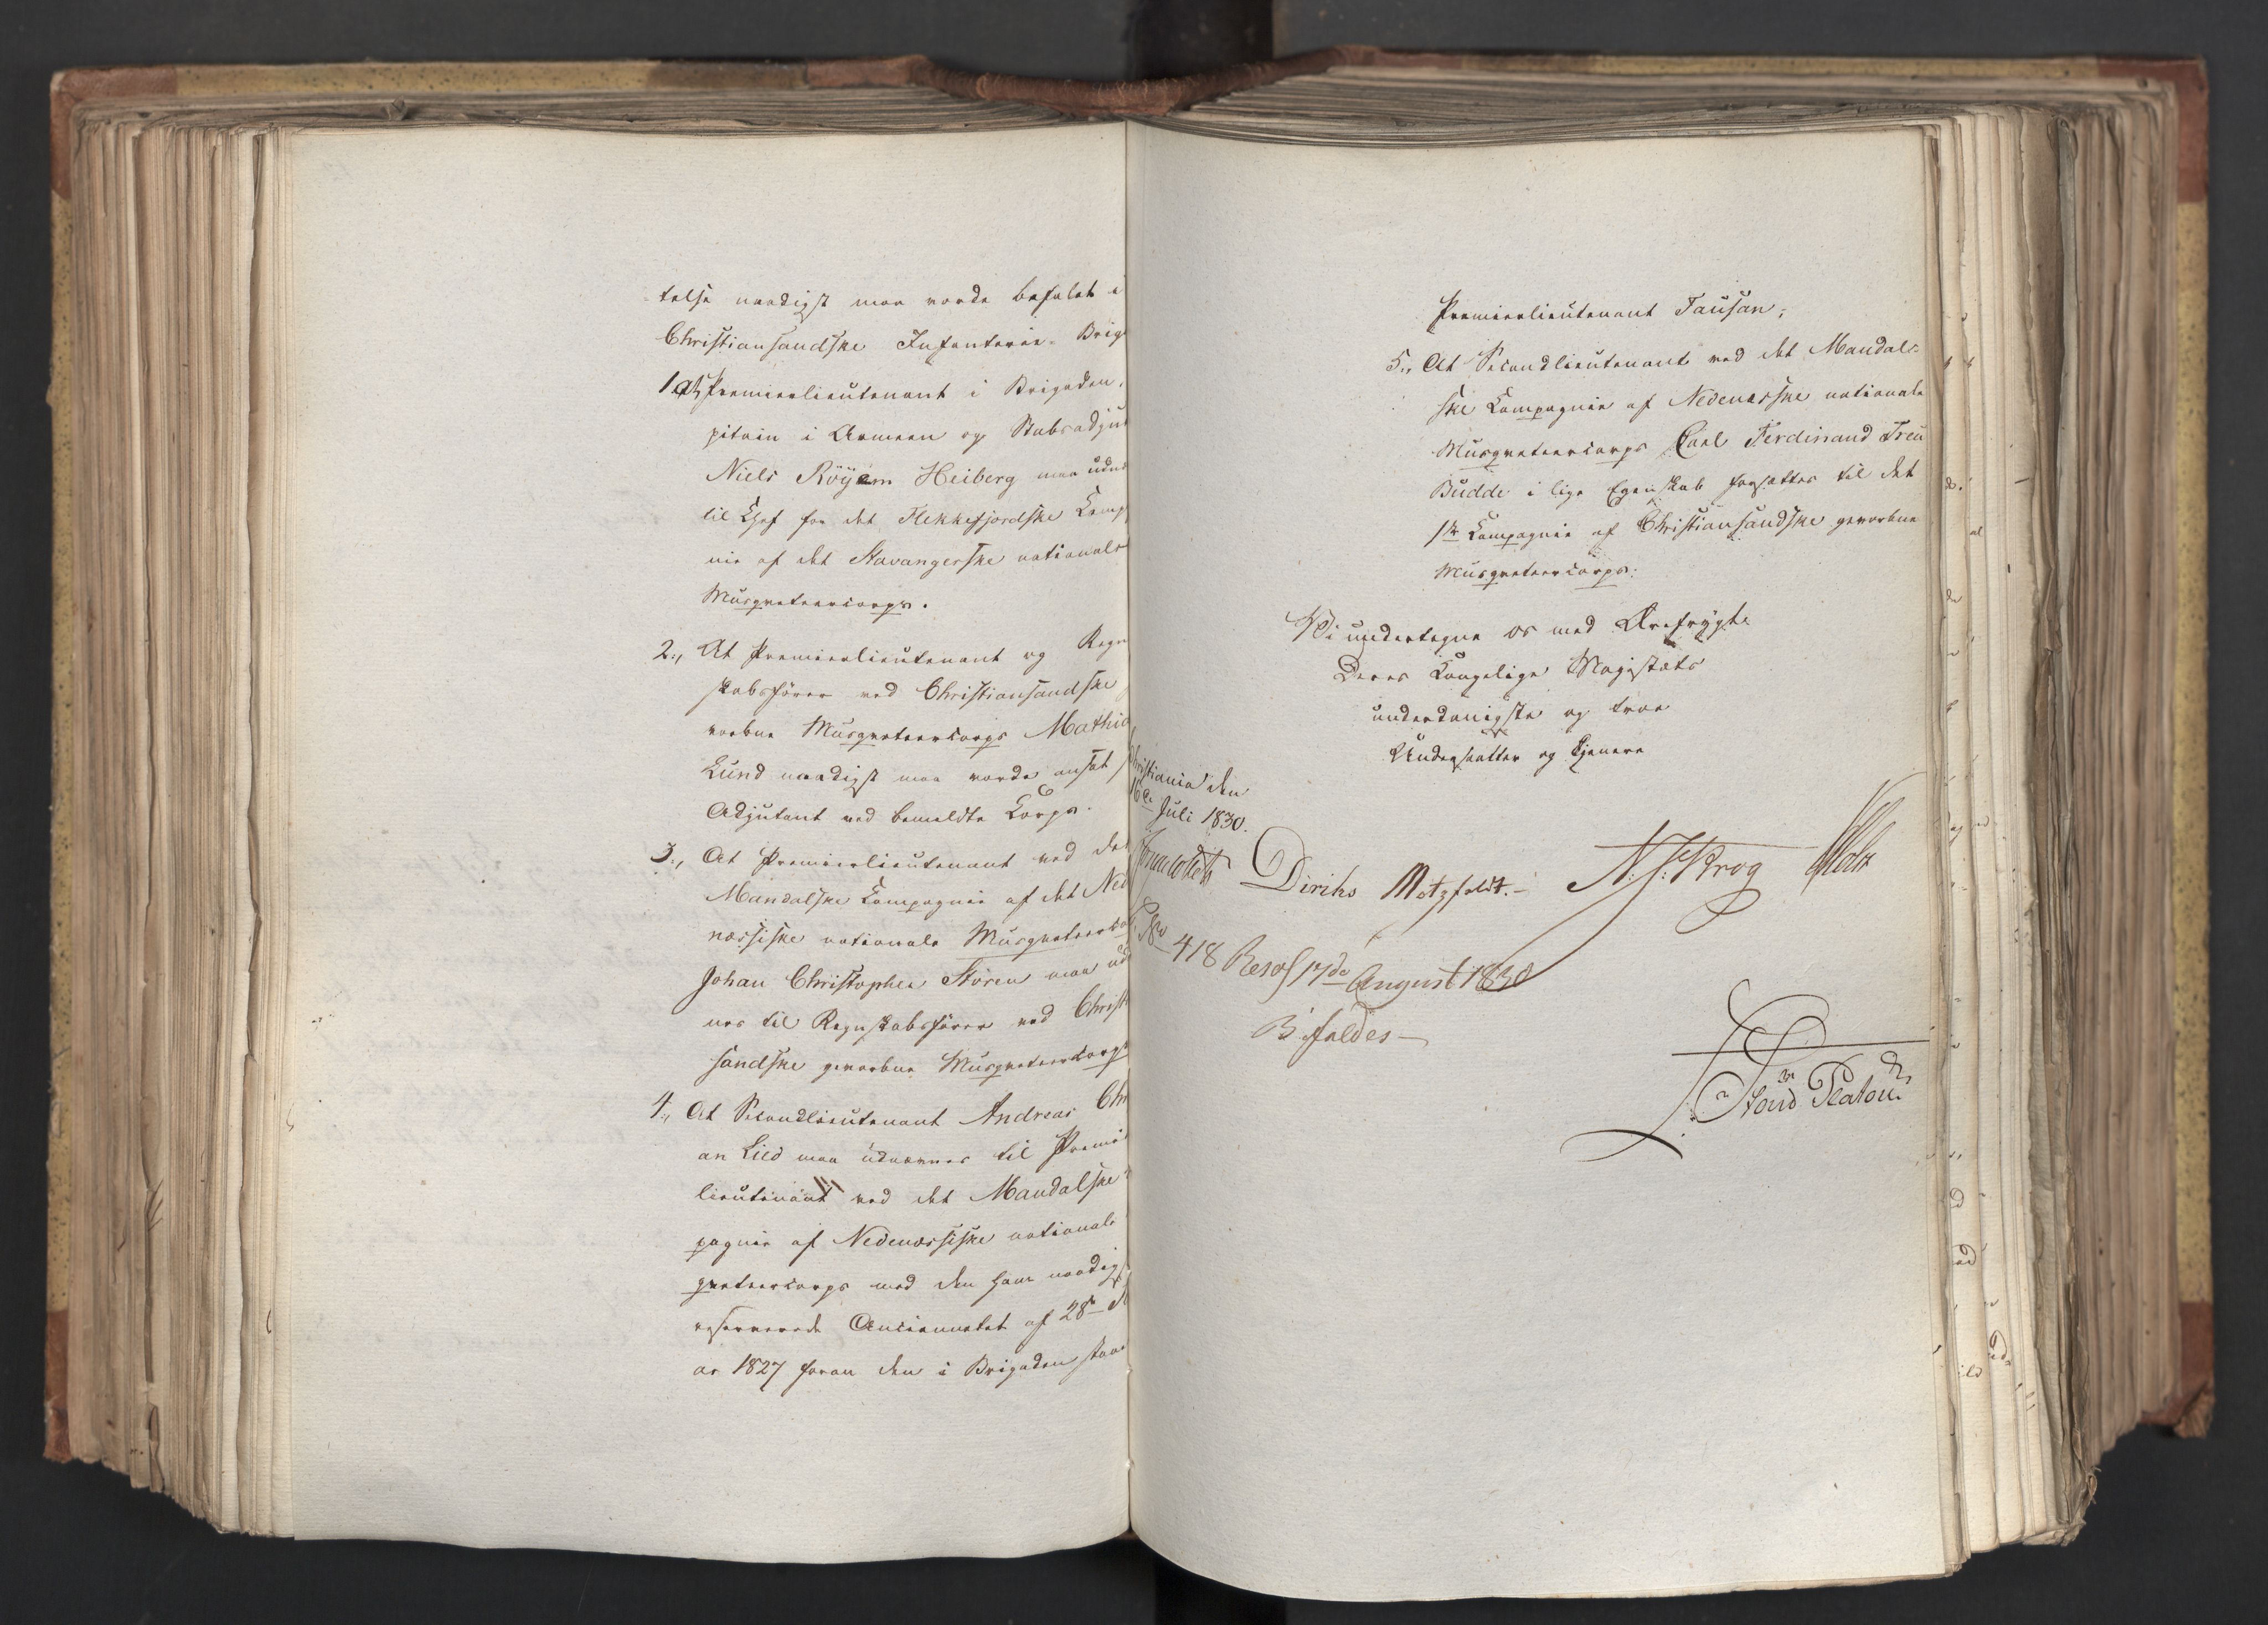 telse naadigst maa vorde befalet i
Christiansandske Infanterie- Brig
1. At Premierlieutenant i Brigaden,
pitain i Armeen og Stabsadjut
Niels Röyem Heiberg maa udn
til Chef for det Flekkefjordske Comp
nie af det Stavangerske nationale
Musqueteercorps.
2., At Premierlieutenant og Regn
skabsförer ved Christiansandske
vorbne Musqueteercorps Mathi
Lund naadigst maa vorde ansat
Adjutant ved bemeldte Corps.
3., At Premierlieutenant ved det
Mandalske Compagnie af det Ned
næssiske nationale Musqueteerco
Johan Christopher Stören maa ud
nes til Regnskabsförer ved Christ
sandske gevorbne Musqueteercorps
4., At Secondlieutenant Andreas Chr
an Lied maa udnævnes til Premi
lieutenant ved det Mandalske
pagnie af Nedenæssiske nationale
queteercorps med den ham naadigst
reserverede Anciennetet af 28de
ar 1827 foran den i Brigaden staa
Premierlieutenant Tausan;
5., At Secondlieutenant ved det Mandal-
ske Compagnie af Nedenæsske nationale
Musqueteercorps Carl Ferdinand Treu
Budde i lige Egenskab forsættes til det
1ste Compagnie af Christiansandske gevorbne
Musqueteercorps.
Vi undertegne os med Ærefrygt
Deres Kongelige Majestæts
underdanigste og troe
Undersaatter og Tjenere
Christiania den
16de Juli 1830.
Diriks Motzfeldt. N. J. Krog Holst
No 418 Resol 17de August 1830
Bifaldes
Stoud Platou